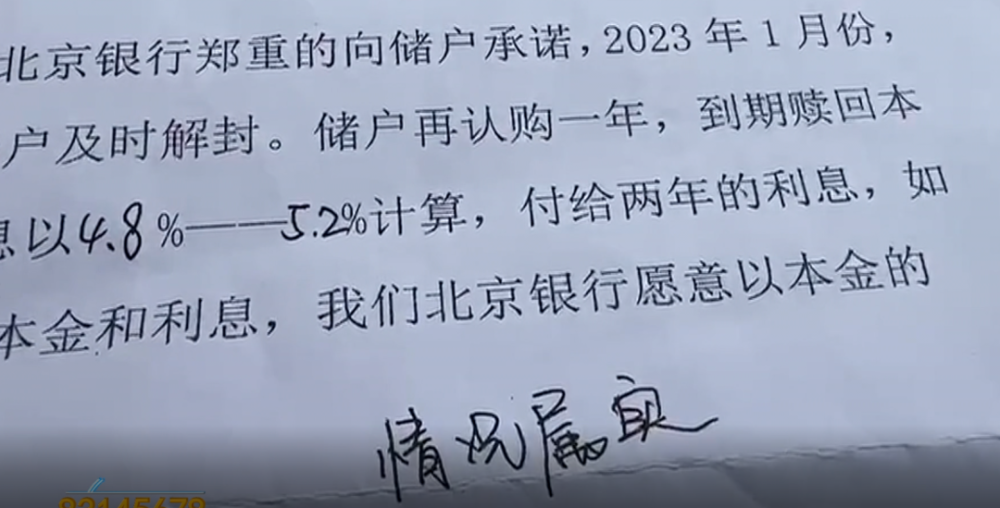 北京银行郑重的向储户承诺,2023年1月份,
户及时解封。储户再认购一年,到期赎回本
息以4.8%——5.2%计算,付给两年的利息,如
本金和利息,我们北京银行愿意以本金的
情况属实